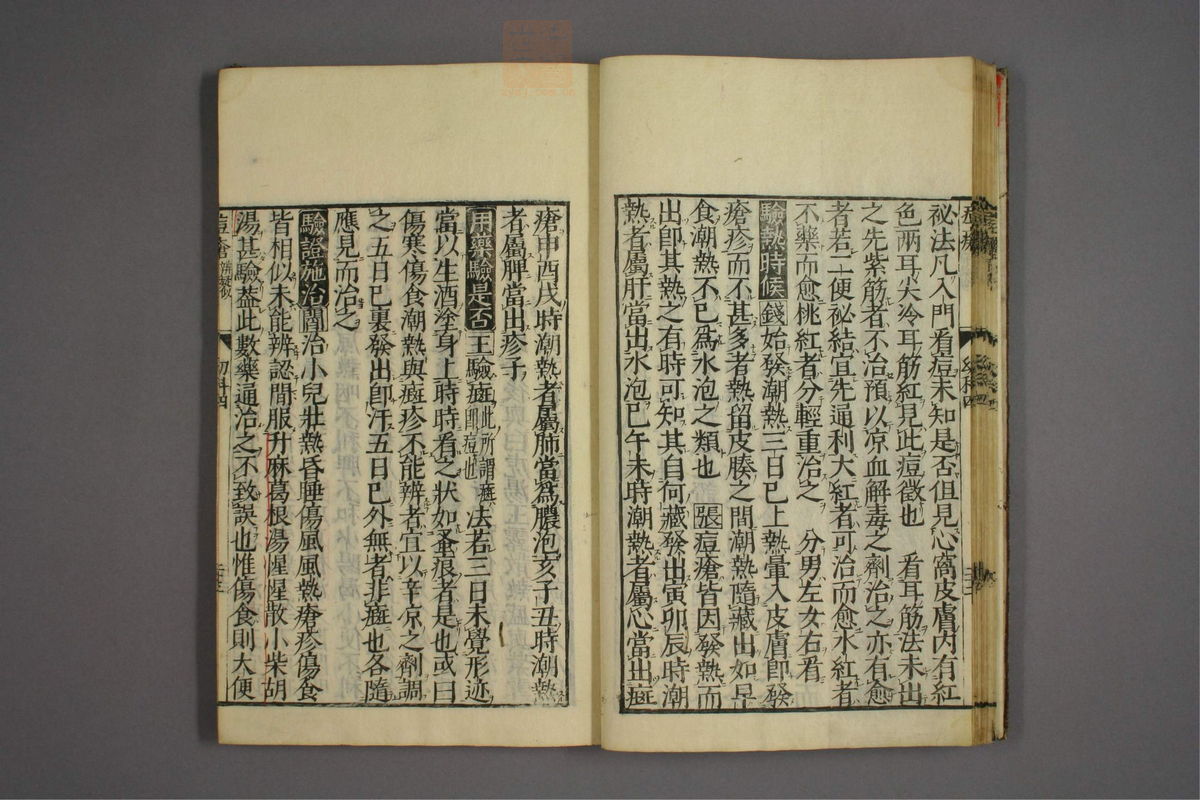 祕法凡入門看痘未知是否但見心窩皮膚內有紅
色兩耳尖冷耳筋紅見此痘徵也 看耳筋法未出
之先紫筋者不治預以凉血解毒之劑治之亦有愈
者若二便祕結宜先通利大紅者可治而愈水紅者
不藥而愈桃紅者分輕重治之 分男左女右看
驗熱時候錢始發潮熱三日已上熱暈入皮膚即發
瘡疹而不甚多者熱留皮腠之間潮熱隨藏出如早
食潮熱不已爲水泡之類也 張痘瘡皆因發熱而
出即其熱之有時可知其自何藏發出寅卯辰時潮
熱者屬肝當出水泡巳午未時潮熱者屬心當出癍
瘡申酉戌時潮熱者屬肺當爲膿泡亥子丑時潮熱
者屬脾當出疹子
用藥驗是否王驗癍此所謂癍即痘也法若三日未覺形迹
當以生酒塗身上時時看之状如蚤痕者是也或曰
傷寒傷食潮熱與癍疹不能辨者宜以辛凉之劑調
之五日已裏發出即汗五日已外無者非癍也各隨
應見而治之
驗證施治閻治小兒壯熱昏睡傷風風熱瘡疹傷食
皆相似未能辨認間服升麻葛根湯惺惺散小柴胡
湯甚驗蓋此數藥通治之不致誤也惟傷食則大便